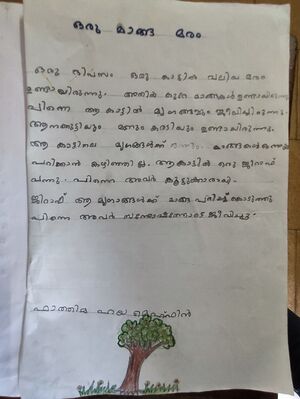 ഒരു മാങ്ങ മരം
ഒരു ദിവസം ഒരു കാട്ടിൽ വലിയ മരം
ഉണ്ടായിരുന്നു. അതിൽ കുറേ മാങ്ങകൾ ഉണ്ടായിരുന്നു
പിന്നെ ആ കാട്ടിൽ മൃഗങ്ങളും ജീവിച്ചിരുന്നു.
ആനക്കുട്ടിയും കരടിയും ഉണ്ടായിരുന്നു.
ആ കാട്ടിലെ മൃഗങ്ങൾക്ക് ഒന്നും മാങ്ങകൾ
പറിക്കാൻ കഴിഞ്ഞില്ല. ആ കാട്ടിൽ ഒരു ജിറാഫ്
വന്നു. പിന്നെ അവർ കൂട്ടുക്കാരായി.
ജിറാഫ് ആ മൃഗങ്ങൾക്ക് മാങ്ങ പറിച്ച് കൊടുത്തു
പിന്നെ അവർ സന്തോഷത്തോടെ ജീവിച്ചു.
ഫാത്തിമ ഹയ മെഹ്ഫിൻ